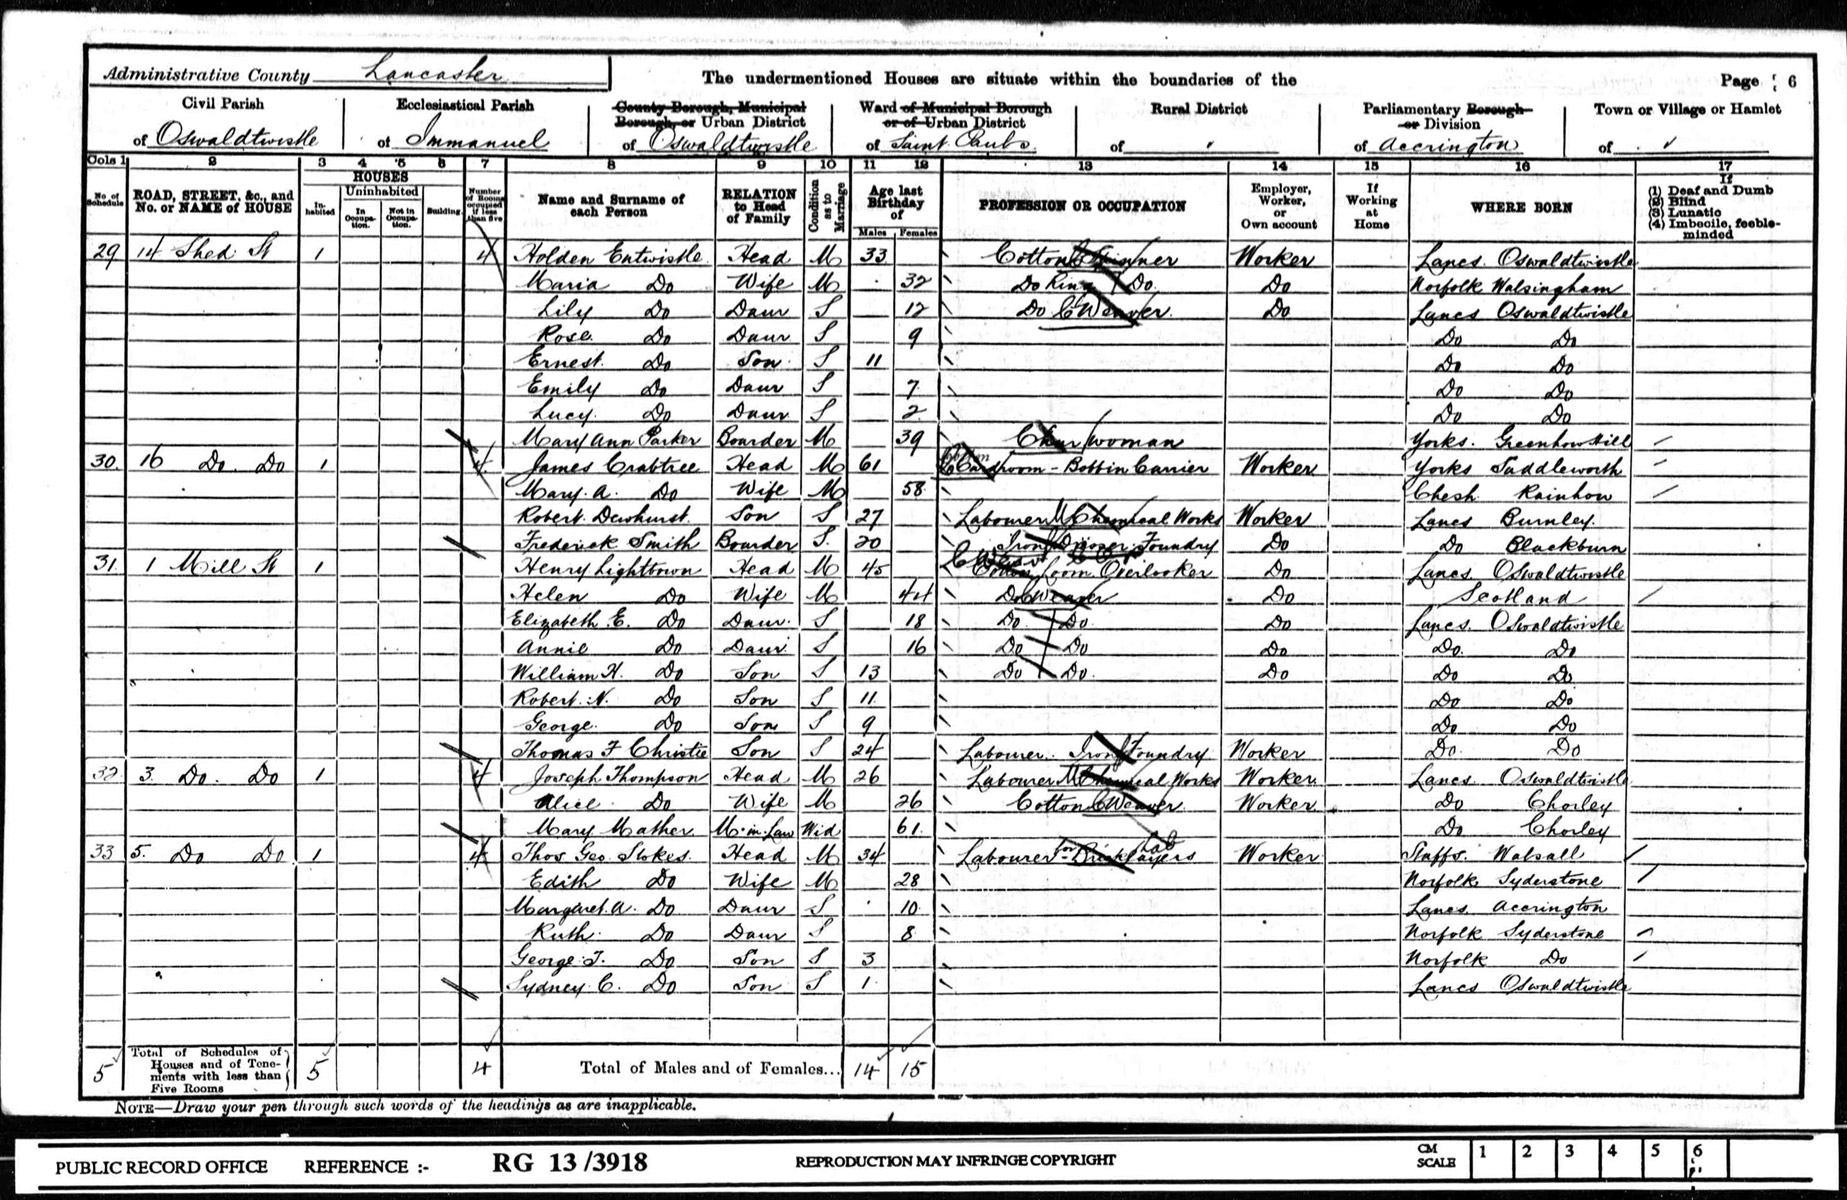 Administrative County Lancaster The undermentioned Houses are situate within the boundaries of the Page 6
Civil Parish Ecclesiastical Parish County Borough, Municipal Borough, or Urban District Ward of Municipal Borough or of Urban District Rural District Parliamentary Borough or Division Town or Village or Hamlet
of Oswaldtwistle of Immanuel of Oswaldtwistle of Saint Pauls of of Accrington of
Cols 1 2 3 4 5 6 7 8 9 10 11 12 13 14 15 16 17
No. of Schedule ROAD, STREET, &c., and No. or NAME of HOUSE HOUSES Inhabited Uninhabited In Occupation. Not in Occupation. Building. Number of Rooms occupied if less than five Name and Surname of each Person RELATION to Head of Family Condition as to Marriage Age last Birthday of Males Females PROFESSION OR OCCUPATION Employer, Worker, or Own account If Working at Home WHERE BORN If (1) Deaf and Dumb (2) Blind (3) Lunatic (4) Imbecile, feeble-minded
29 14 Shed St 1 4 Holden Entwistle Head M 33 Cotton Spinner Worker Lancs. Oswaldtwistle
Maria Do Wife M 32 Do Ring Do Do Norfolk Walsingham
Lily Do Daur S 12 Do C Weaver Do Lancs Oswaldtwistle
Rose Do Daur S 9 Do Do
Ernest Do Son S 11 Do Do
Emily Do Daur S 7 Do Do
Lucy Do Daur S 2 Do Do
Mary Ann Parker Boarder M 39 Char woman Yorks. Greenhow Hill
30 16 Do Do 1 4 James Crabtree Head M 61 Cardroom - Bobbin Carrier Worker Yorks Saddleworth
Mary. A. Do Wife M 58 Chesh Rainhow
Robert Dewhurst Son S 27 Labourer Chemical Works Worker Lancs Burnley
Frederick Smith Boarder S 20 Iron Foundry Do Do Blackburn
31 1 Mill St 1 Henry Lightown Head M 45 Cotton Loom Overlooker Do Lancs Oswaldtwistle
Helen Do Wife M 44 Do Weaver Do Scotland
Elizabeth E. Do Daur S 18 Do Do Do Lancs. Oswaldtwistle
Annie Do Daur S 16 Do Do Do Do Do
William H. Do Son S 13 Do Do Do Do Do
Robert. N. Do Son S 11 Do Do
George Do Son S 9 Do Do
Thomas F Christie Son S 24 Labourer Iron Foundry Worker Do Do
32 3. Do. Do 1 4 Joseph Thompson Head M 26 Labourer Chemical Works Worker Lancs Oswaldtwistle
Alice Do Wife M 26 Cotton C Weaver Worker Do Chorley
Mary Mather M-in-Law Wid 61 Do Chorley
33 5. Do Do 1 4 Thos Geo. Stokes Head M 34 Labourer for Bricklayers Lab Worker Staffs. Walsall
Edith Do Wife M 28 Norfolk Syderstone
Margaret. A. Do Daur S 10 Lancs Accrington
Ruth Do Daur S 8 Norfolk Syderstone
George. T. Do Son S 3 Norfolk Do
Sydney C. Do Son S 1 Lancs Oswaldtwistle
5 Total of Schedules of Houses and of Tenements with less than Five Rooms 5 4 Total of Males and of Females... 14 15
NOTE—Draw your pen through such words of the headings as are inapplicable.
PUBLIC RECORD OFFICE REFERENCE :- RG 13/3918 REPRODUCTION MAY INFRINGE COPYRIGHT CM SCALE 1 2 3 4 5 6